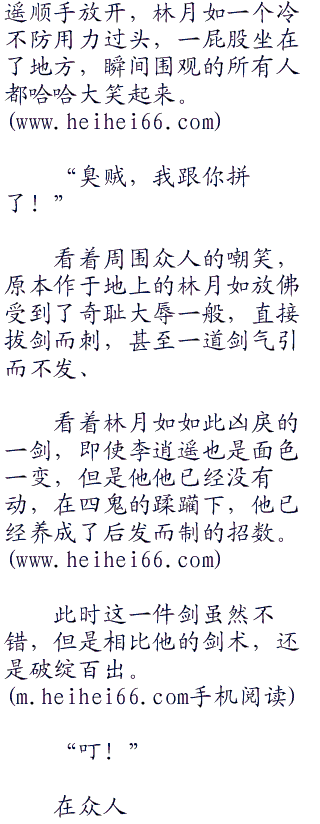 遥顺手放开，林月如一个冷
不防用力过头，一屁股坐在
了地方，瞬间围观的所有人
都哈哈大笑起来。
(www.heihei66.com)
“臭贼，我跟你拼
了！”
看着周围众人的嘲笑，
原本作于地上的林月如放佛
受到了奇耻大辱一般，直接
拔剑而刺，甚至一道剑气引
而不发、
看着林月如如此凶戾的
一剑，即使李逍遥也是面色
一变，但是他他已经没有
动，在四鬼的蹂躏下，他已
经养成了后发而制的招数。
(www.heihei66.com)
此时这一件剑虽然不
错，但是相比他的剑术，还
是破绽百出。
(m.heihei66.com手机阅读)
“叮！”
在众人